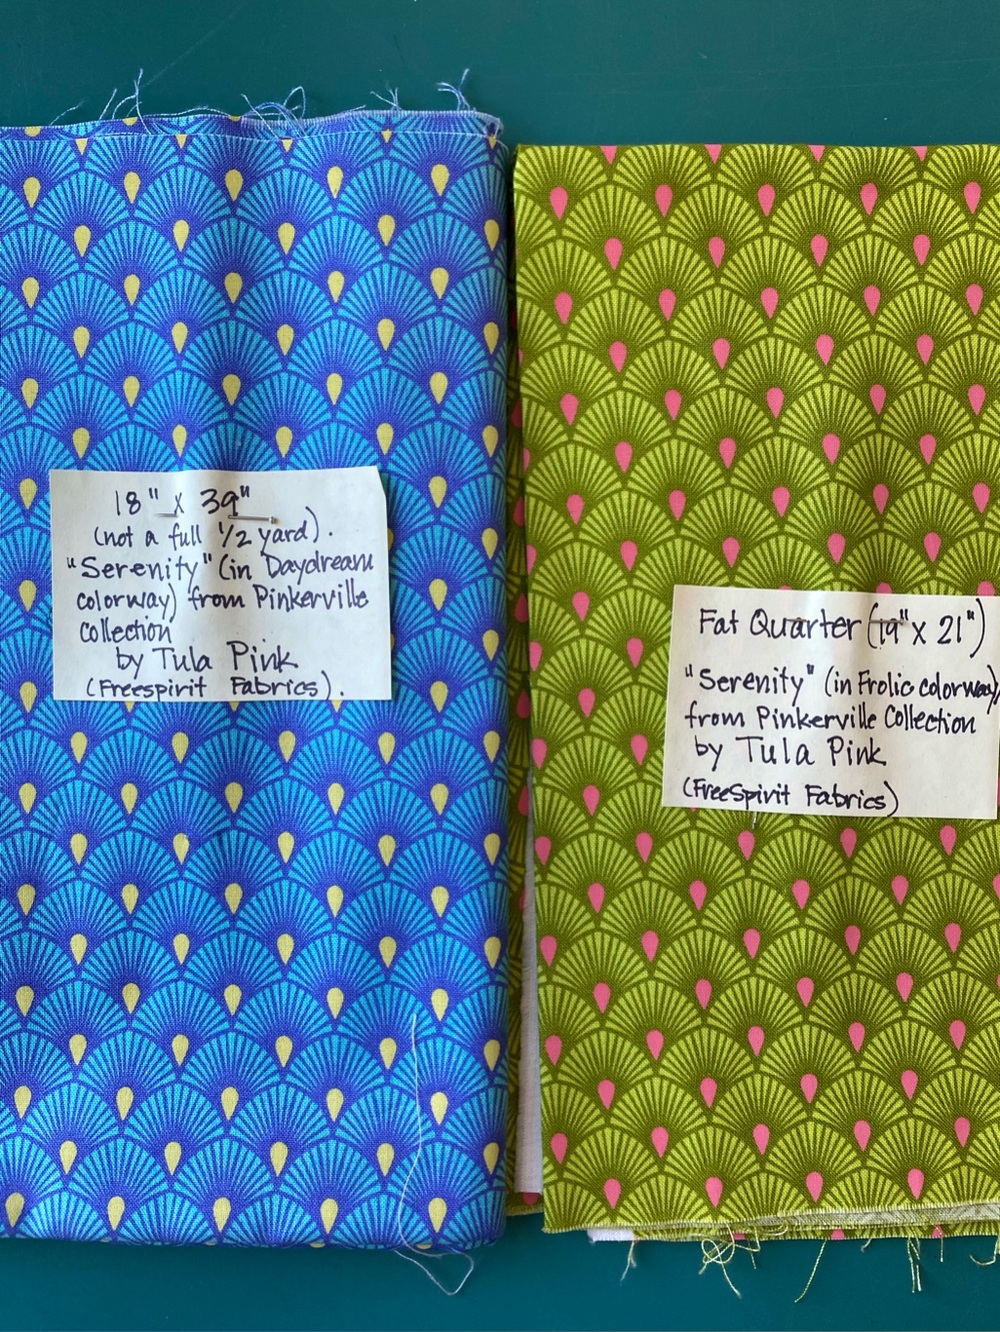 18" x 39"
(not a full 1/2 yard).
"Serenity" (in Daydream
colorway) from Pinkerville
Collection
by Tula Pink
(Freespirit Fabrics).
Fat Quarter (19" x 21")
"Serenity" (in Frolic colorway)
from Pinkerville Collection
by Tula Pink
(FreeSpirit Fabrics)